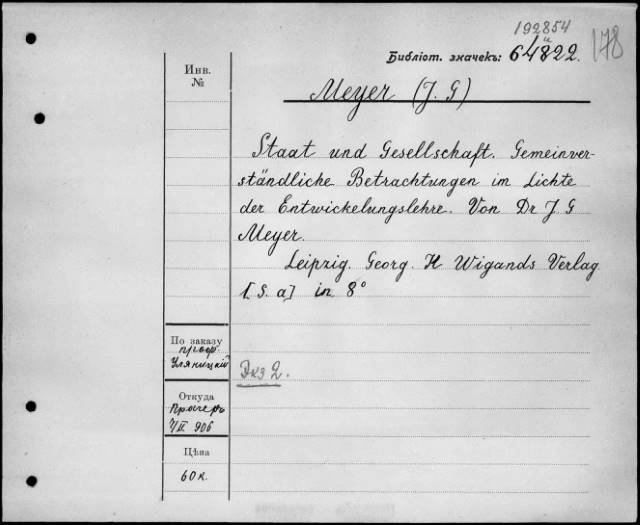 192854
и
Библiот. значекъ: 64822.
178
Инв.
№
Meyer (J. G)
Staat und Gesellschaft. Gemeinver-
ständliche Betrachtungen im Lichte
der Entwickelungslehre. Von Dr J. G
Meyer.
Leipzig. Georg. H Wigands Verlag
[S. a] in 8°
По заказу
проф.
Уляницкiй
Экз 2.
Откуда
906
Цѣна
60 к.